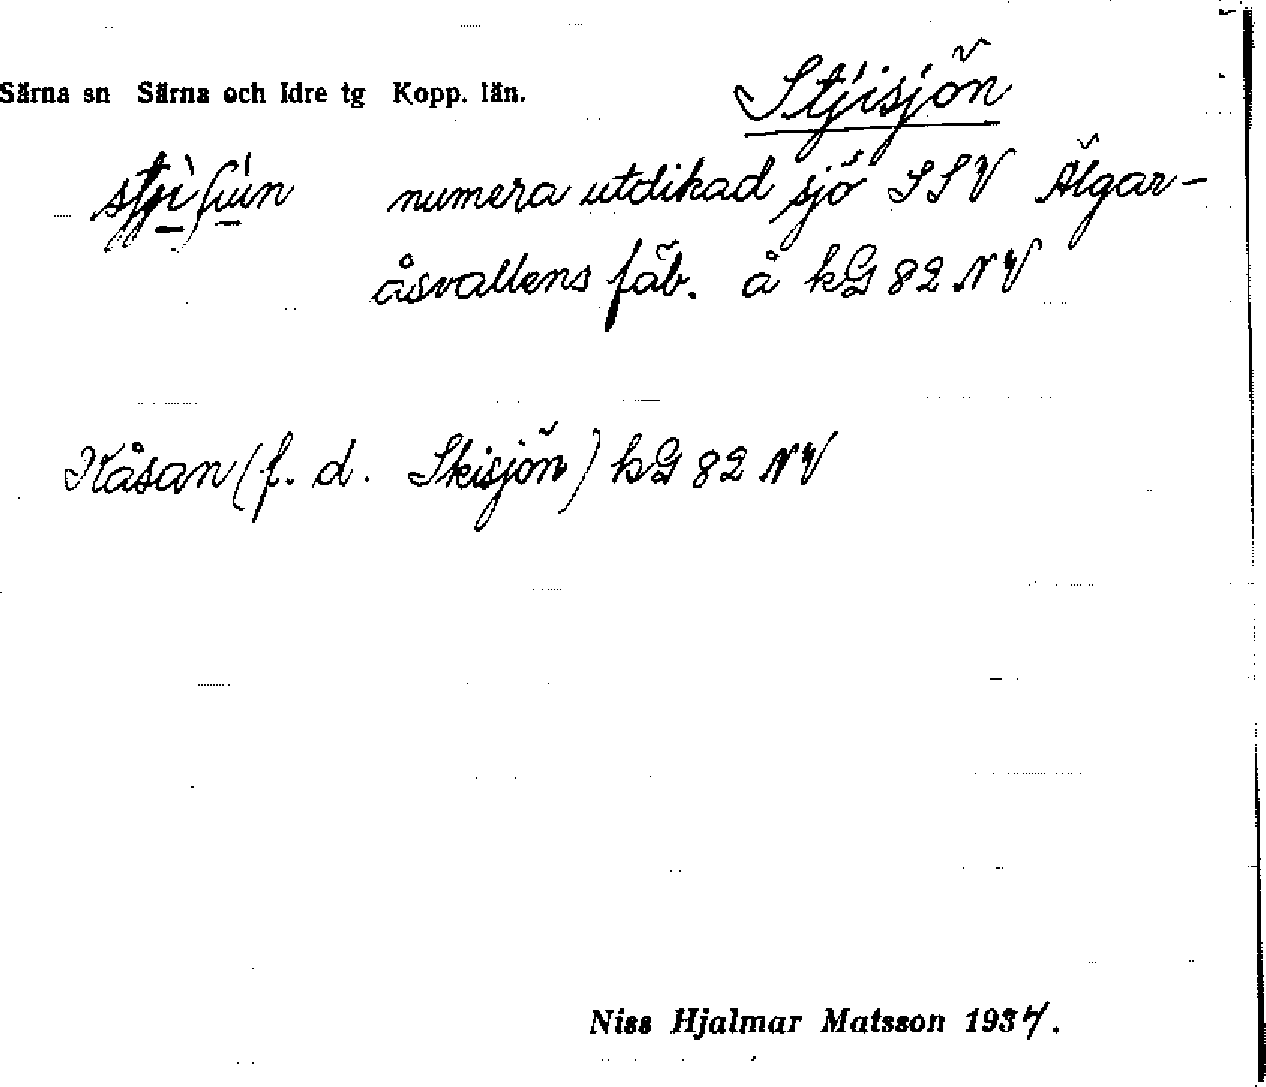 Särna sn Särna och Idre tg Kopp. län.
Stjisjön
numera utdikad sjö SSV Älgar-
åsvallens fäb. å kG 82 NV
Kåsan (f. d. Skisjön) kG 82 NV
Niss Hjalmar Matsson 1937.